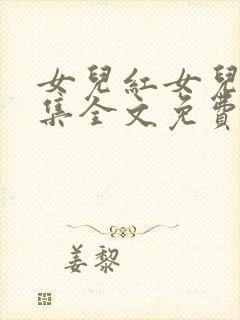 女兒紅女兒
集全文免費
姜黎